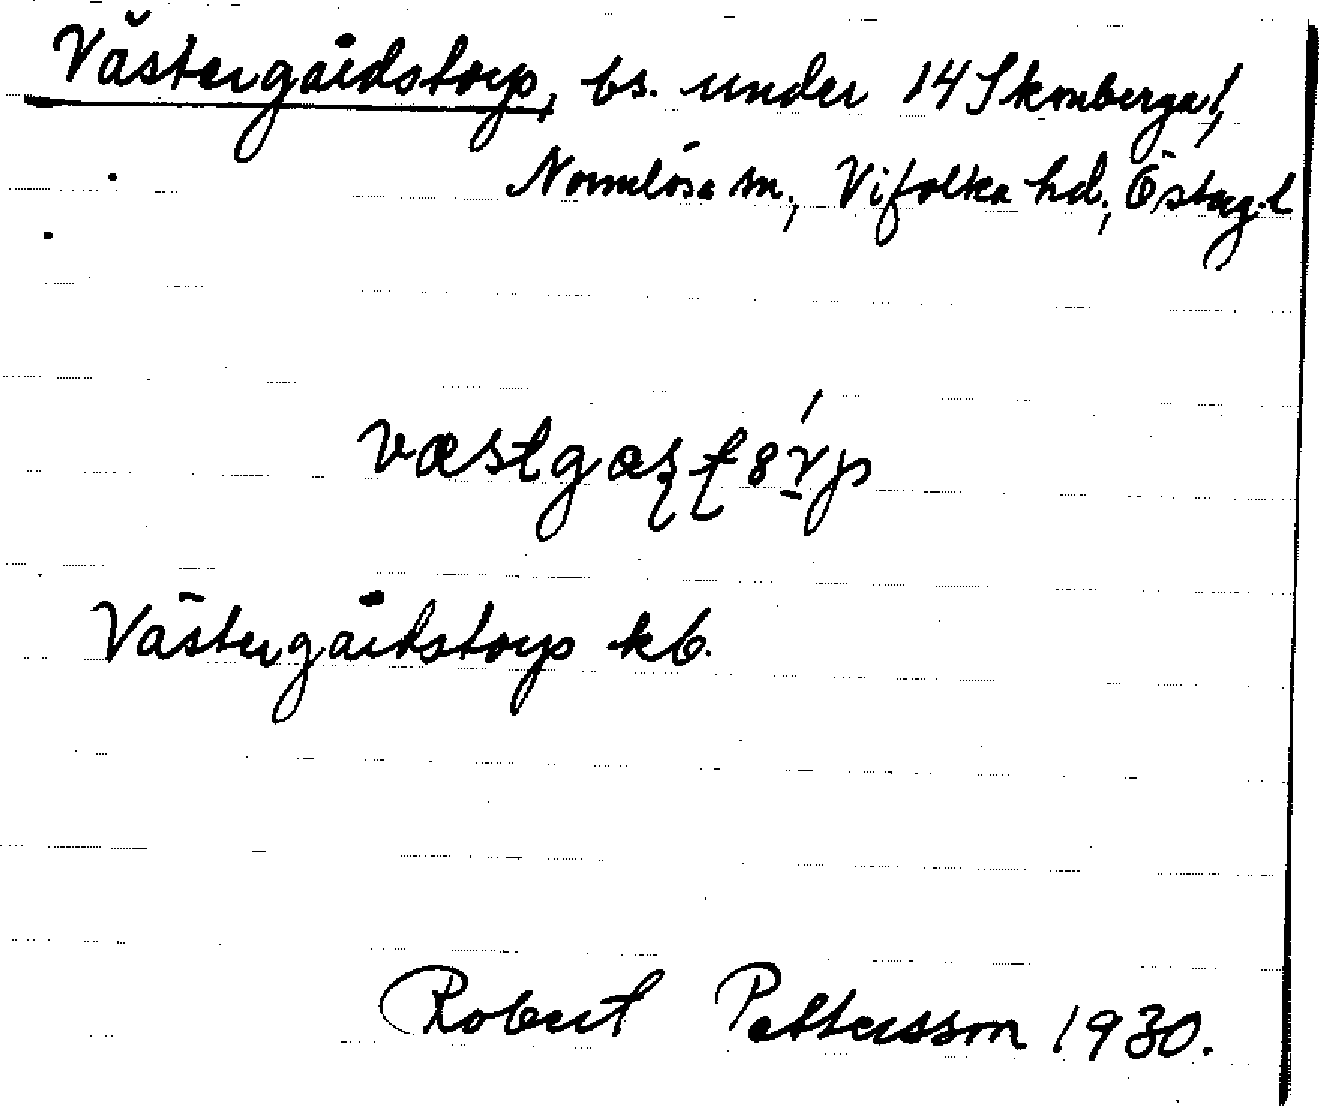 Västergårdstorp, bs. under 14 Skonberga/,
Normlösa sn, Vifolka hd, Österg.l
væstgæʂʈ8ŕp
Västergårdstorp kb.
Robert Pettersson 1930.